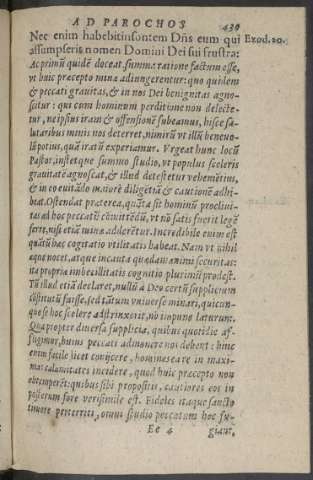 AD PAROCHOS 439
Nec enim habebit insontem Dñs eum qui Exod. 20.
assumpserit nomen Domini Dei sui frustra:
Ac primū quidē doceat, summa ratione factum esse,
vt huic præcepto minæ adiungerentur: quo quidem
& peccati grauitas, & in nos Dei benignitas agno-
scitur: qui cum hominum perditione non delecte-
tur, ne ipsius iram & offensionē subeamus, hisce sa-
lutaribus minis nos deterret, nimirū vt illū beneuo-
lū potius, quā iratū experiamur. Vrgeat hunc locū
Pastor, instetque summo studio, vt populus sceleris
grauitatē agnoscat, & illud detestetur vehemētius,
& in eo euitādo maiorē diligētiā & cautionē adhi-
beat. Ostendat præterea, quāta sit hominū procliui-
tas ad hoc peccatū cōmittēdū, vt nō satis fuerit legē
ferre, nisi etiā minæ adderētur. Incredibile enim est
quātū hæc cogitatio vtilitatis habeat. Nam vt nihil
æque nocet, atque incauta quædam animi securitas:
ita propriæ imbecillitatis cognitio plurimū prodest.
Tū illud etiā declaret, nullū à Deo certū supplicium
cōstitutū fuisse, sed tātum vniuerse minari, quicun-
que se hoc scelere adstrinxerit, nō impune laturum.
Quapropter diuersa supplicia, quibus quotidie af-
fligimur, huius peccati admonere nos debent: hinc
enim facile licet coniicere, homines ea re in maxi-
mas calamitates incidere, quod huic præcepto non
obtemperēt: quibus sibi propositis, cautiores eos in
posterum fore verisimile est. Fideles itaque sancto
timore perterriti, omni studio peccatum hoc fu-
Ee 4 giant,